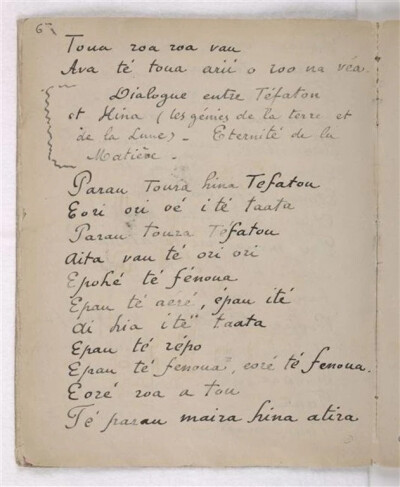 Toua roa roa vau
Ava té toua arii o roo na véa.
Dialogue entre Téfatou
et Hina (les génies de la terre et
de la Lune) _ Eternité de la
Matière _
Parau Toura hina Tefatou
Eori ori oé ité taata
Parau toura Téfatou
Aita vau té ori ori
Epohé té fénoua
Epau té aeré, épau ité
ai hia ité taata
Epau té répo
Epau té fenoua, eoré té fenoua.
Eoré roa a tou
Té parau maira hina atira